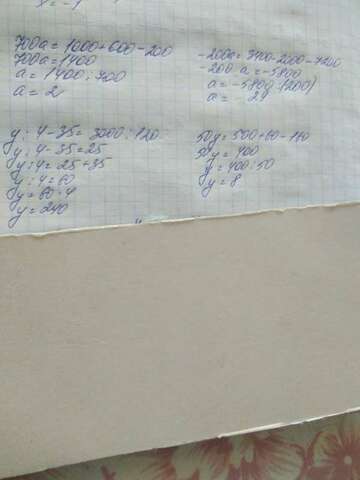 x = -1
700a = 1000+600-200
700a = 1400
a = 1400:700
a = 2
-200a = 3400-2000-7200
-200 a = -5800
a = -5800:(200)
a = 29
y : 4-35 = 3000:120
y : 4-35 = 25
y : 4 = 25+35
y : 4 = 60
y = 60·4
y = 240
50y = 500+60-160
50y = 400
y = 400:50
y = 8